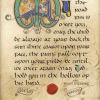 the
road rise
to meet
you, may the wind
be always at your back,
the sun shine warm upon your
face, the rains fall soft
upon your fields & until
we meet again, may God
hold you in the hollow of
his hand.